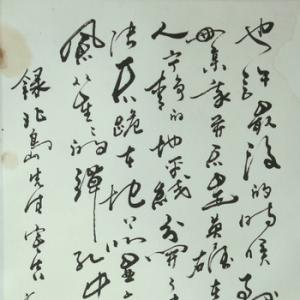 也许最后的时候到
母亲我并不是英雄在
人宁静的地平线分开了
决不跪在地上以显
风从星星的弹孔中
录北岛先生宣告